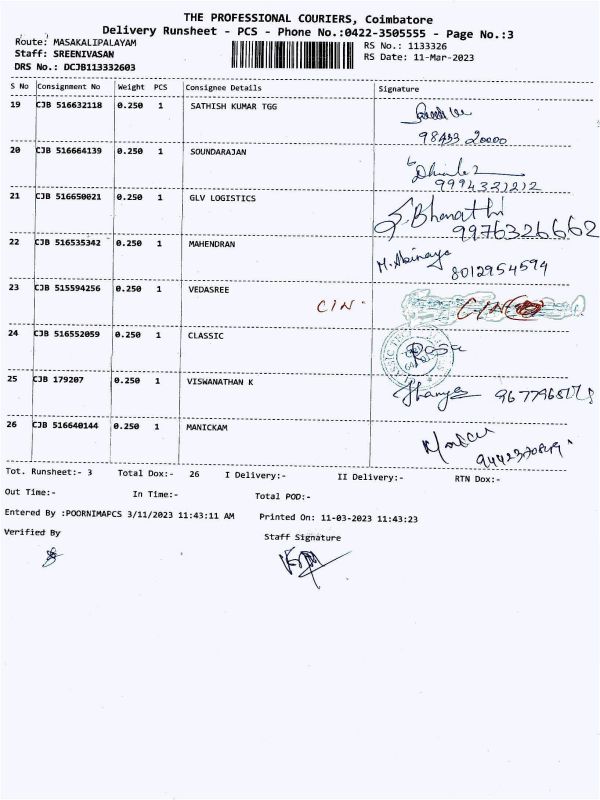 THE PROFESSIONAL COURIERS, Coimbatore
Delivery Runsheet - PCS - Phone No.:0422-3505555 - Page No.:3
Route: MASAKALIPALAYAM
RS No.: 1133326
Staff: SREENIVASAN
RS Date: 11-Mar-2023
DRS No.: DCJB113332603
S No Consignment No Weight PCS Consignee Details Signature
19 CJB 516632118 0.250 1 SATHISH KUMAR TGG
98433 20000
20 CJB 516664139 0.250 1 SOUNDARAJAN
9994331212
21 CJB 516650021 0.250 1 GLV LOGISTICS S. Bharathi
9976326662
22 CJB 516535342 0.250 1 MAHENDRAN M. Abinaya
8012954594
23 CJB 515594256 0.250 1 VEDASREE
CIN CIN
24 CJB 516552059 0.250 1 CLASSIC
Rosa
25 CJB 179207 0.250 1 VISWANATHAN K
26 CJB 516640144 0.250 1 MANICKAM
Tot. Runsheet:- 3 Total Dox:- 26 I Delivery:- II Delivery:- RTN Dox:-
Out Time:- In Time:- Total POD:-
Entered By :POORNIMAPCS 3/11/2023 11:43:11 AM Printed On: 11-03-2023 11:43:23
Verified By Staff Signature